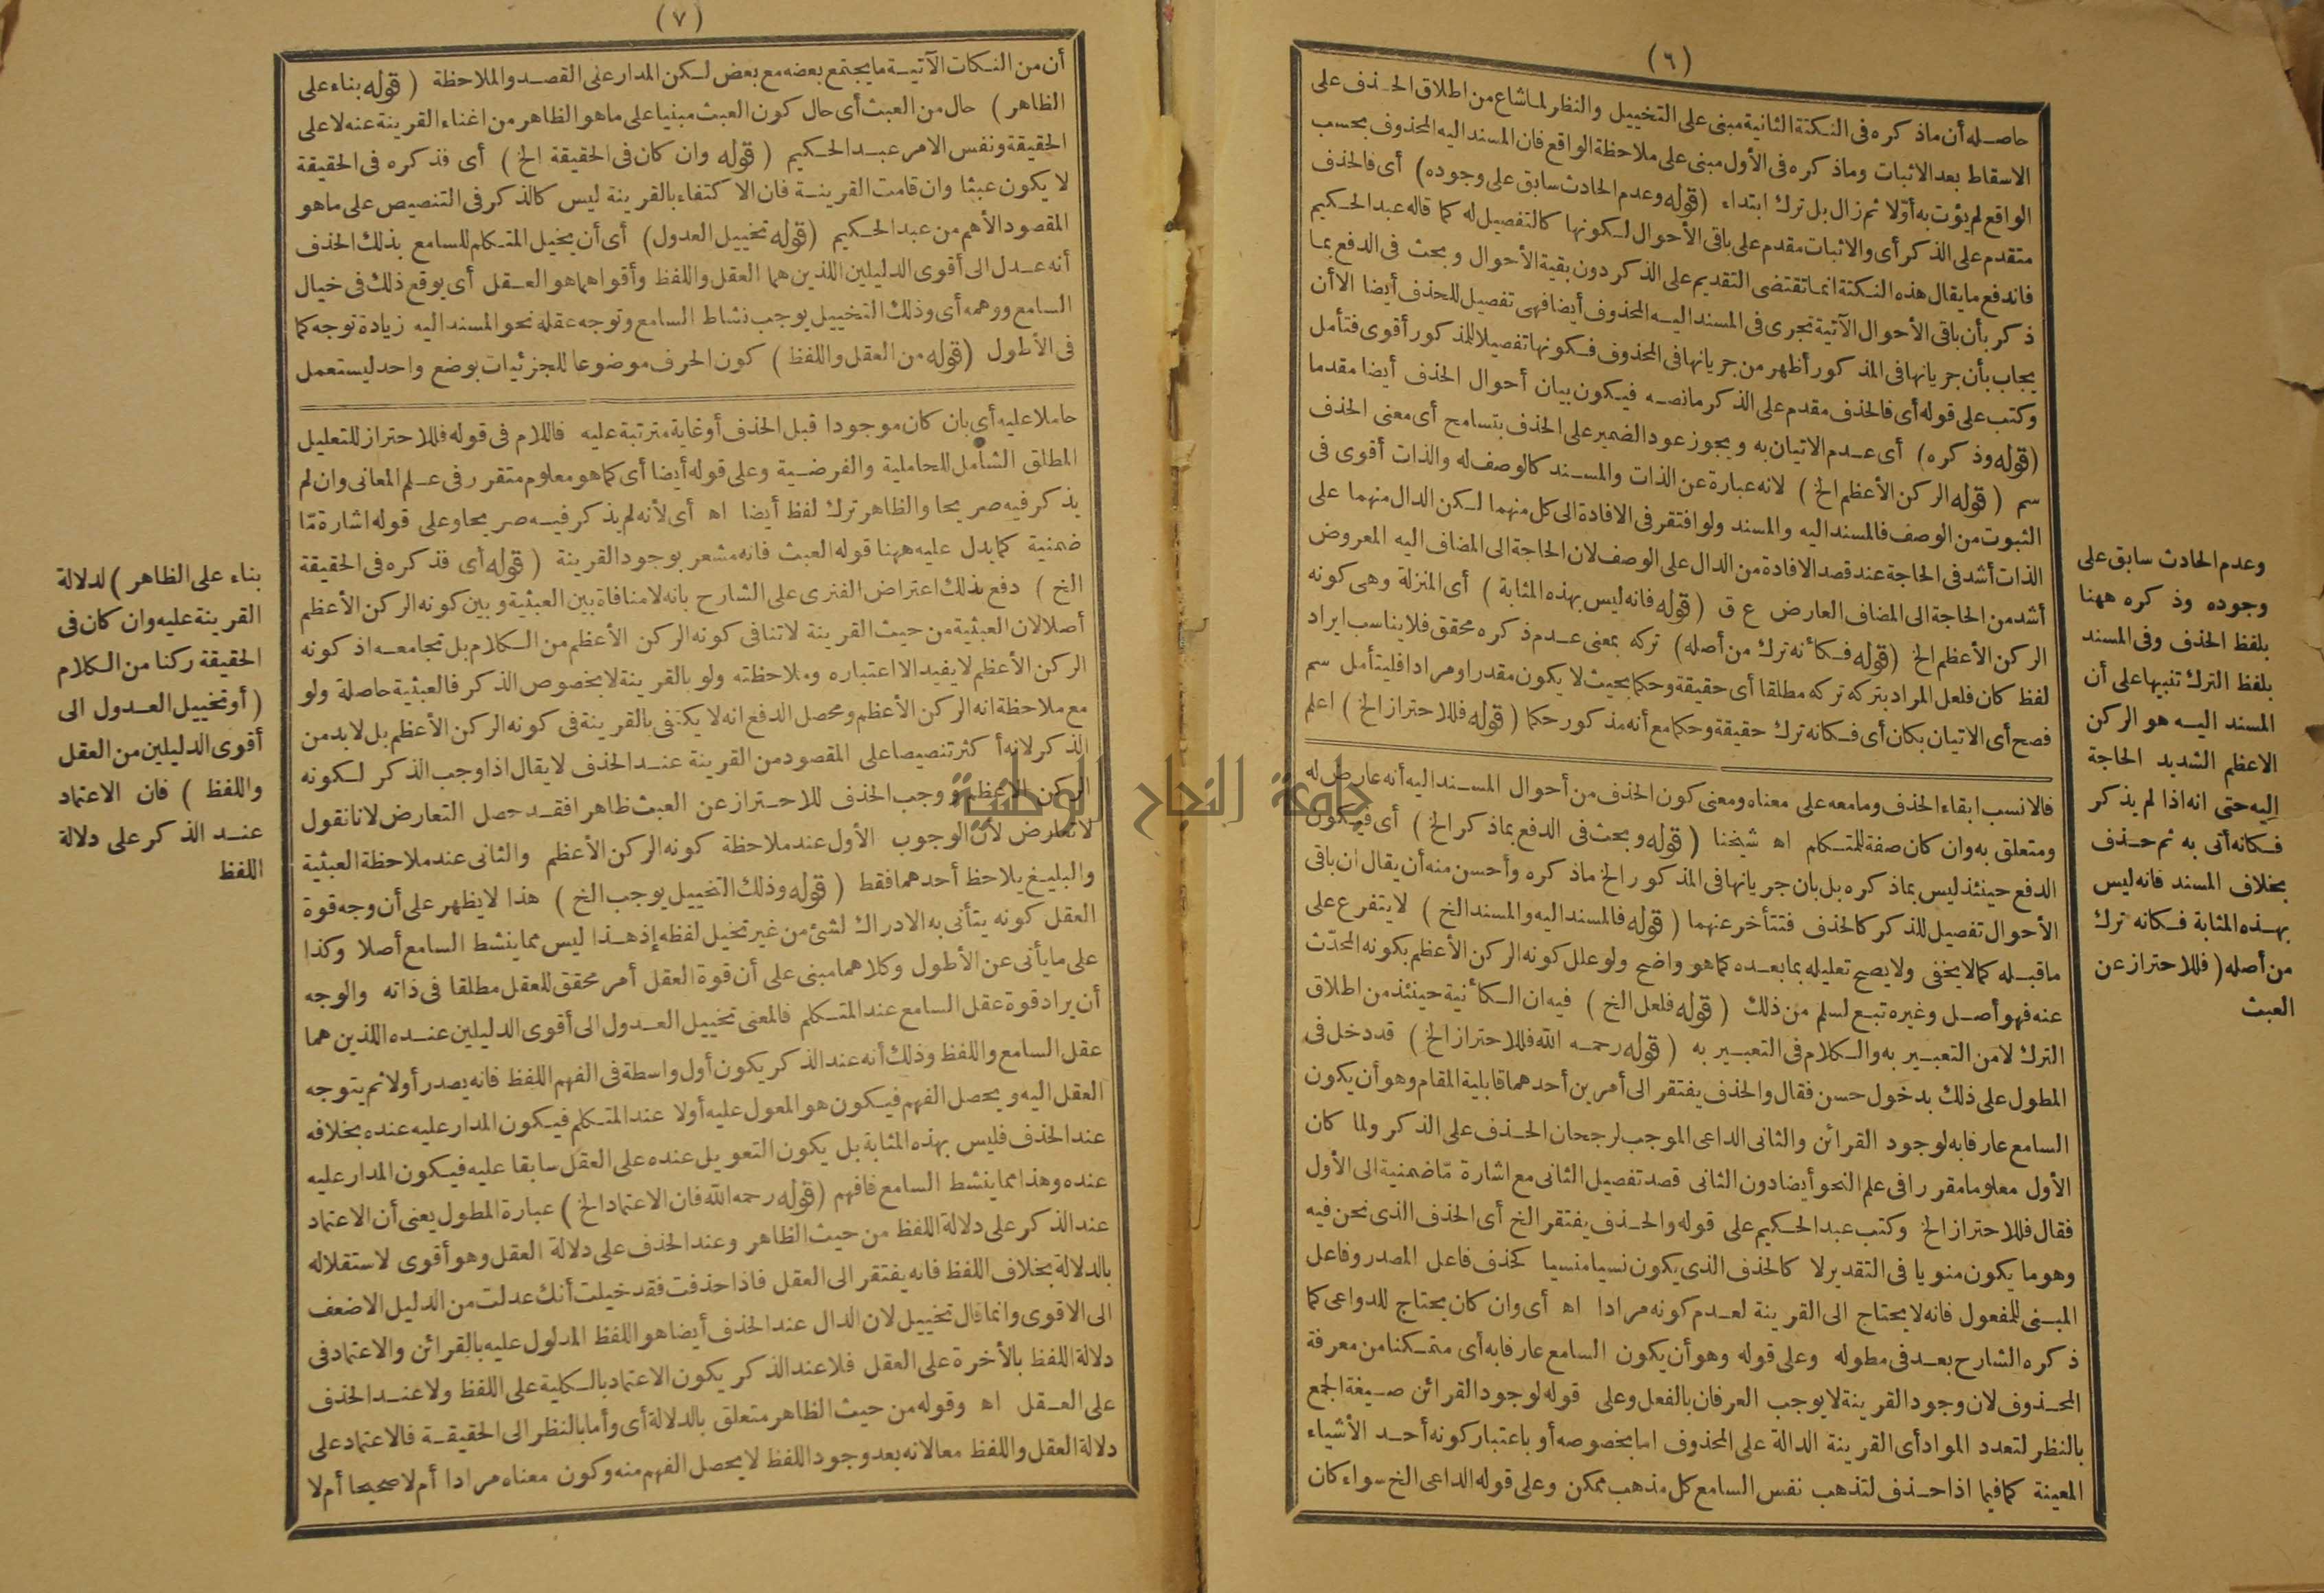 (٦)
حاصله أن ماذكره فى النكتة الثانية مبنى على التخييل والنظر لما شاع من اطلاق الحذف على
الاسقاط بعد الاثبات وماذكره فى الأول مبنى على ملاحظة الواقع فان المسند اليه المحذوف بحسب
الواقع لم يؤت به أولا ثم زال بل ترك ابتداء (قوله وعدم الحادث سابق على وجوده) أى فالحذف
متقدم على الذكر أى والاثبات مقدم على باقى الأحوال لكونها كالتفصيل له كما قاله عبد الحكيم
فاندفع مايقال هذه النكتة انما تقتضى التقديم على الذكر دون بقية الأحوال وبحث فى الدفع بما
ذكر بأن باقى الأحوال الآتية تجرى فى المسند اليه المحذوف أيضا فهى تفصيل للحذف أيضا الا أن
يجاب بأن جريانها فى المذكور أظهر من جريانها فى المحذوف فكونها تفصيلا للمذكور أقوى فتأمل
وكتب على قوله أى فالحذف مقدم على الذكر مانصه فيكون بيان أحوال الحذف أيضا مقدما
(قوله وذكره) أى عدم الاتيان به ويجوز عود الضمير على الحذف بتسامح أى معنى الحذف
سم (قوله الركن الأعظم الخ) لانه عبارة عن الذات والمسند كالوصف له والذات أقوى فى
الثبوت من الوصف فالمسند اليه والمسند ولو افتقر فى الافادة الى كل منهما لكن الدال منهما على
الذات أشد فى الحاجة عند قصد الافادة من الدال على الوصف لان الحاجة الى المضاف اليه المعروض
أشد من الحاجة الى المضاف العارض ع ق (قوله فانه ليس بهذه المثابة) أى المنزلة وهى كونه
الركن الأعظم الخ (قوله فكأنه ترك من أصله) تركه بمعنى عدم ذكره محقق فلا يناسب ايراد
لفظ كان فلعل المراد بتركه تركه مطلقا أى حقيقة وحكما بحيث لا يكون مقدرا ومرادا فليتأمل سم
فصح أى الاتيان بكان أى فكانه ترك حقيقة وحكما مع أنه مذكور حكما (قوله فللاحتراز الخ) اعلم
فالانسب ابقاء الحذف ومامعه على معناه ومعنى كون الحذف من أحوال المسند اليه أنه عارض له
ومتعلق به وان كان صفة للمتكلم اه شيخنا (قوله وبحث فى الدفع بماذكر الخ) أى فيكون
الدفع حينئذ ليس بماذكره بل بان جريانها فى المذكور الخ ماذكره وأحسن منه أن يقال ان باقى
الأحوال تفصيل للذكر كالحذف فتتأخر عنهما (قوله فالمسند اليه والمسند الخ) لا يتفرع على
ماقبله كما لا يخفى ولا يصح تعليله بما بعده كما هو واضح ولو علل كونه الركن الأعظم بكونه المحدّث
عنه فهو أصل وغيره تبع لسلم من ذلك (قوله فلعل الخ) فيه ان الكأنية حينئذ من اطلاق
الترك لا من التعبير به والكلام فى التعبير به (قوله رحمه الله فللاحتراز الخ) قد دخل فى
المطول على ذلك بدخول حسن فقال والحذف يفتقر الى أمرين أحدهما قابلية المقام وهو أن يكون
السامع عارفا به لوجود القرائن والثانى الداعى الموجب لرجحان الحذف على الذكر ولما كان
الأول معلوما مقررا فى علم النحو أيضا دون الثانى قصد تفصيل الثانى مع اشارة مّا ضمنية الى الأول
فقال فللاحتراز الخ وكتب عبد الحكيم على قوله والحذف يفتقر الخ أى الحذف الذى نحن فيه
وهو ما يكون منويا فى التقدير لا كالحذف الذى يكون نسيا منسيا كحذف فاعل المصدر وفاعل
المبنى للمفعول فانه لا يحتاج الى القرينة لعدم كونه مرادا اه أى وان كان يحتاج للدواعى كما
ذكره الشارح بعد فى مطوله وعلى قوله وهو أن يكون السامع عارفا به أى متمكنا من معرفة
المحذوف لان وجود القرينة لا يوجب العرفان بالفعل وعلى قوله لوجود القرائن صيغة الجمع
بالنظر لتعدد المواد أى القرينة الدالة على المحذوف اما بخصوصه أو باعتبار كونه أحد الأشياء
المعينة كما فيما اذا حذف لتذهب نفس السامع كل مذهب ممكن وعلى قوله الداعى الخ سواء كان
وعدم الحادث سابق على
وجوده وذكره ههنا
بلفظ الحذف وفى المسند
بلفظ الترك تنبيها على أن
المسند اليه هو الركن
الاعظم الشديد الحاجة
اليه حتى انه اذا لم يذكر
فكانه أتى به ثم حذف
بخلاف المسند فانه ليس
بهذه المثابة فكانه ترك
من أصله (فللاحتراز عن
العبث
(٧)
أن من النكات الآتية مايجتمع بعضه مع بعض لكن المدار على القصد والملاحظة (قوله بناء على
الظاهر) حال من العبث أى حال كون العبث مبنيا على ماهو الظاهر من اغناء القرينة عنه لا على
الحقيقة ونفس الامر عبد الحكيم (قوله وان كان فى الحقيقة الخ) أى فذكره فى الحقيقة
لا يكون عبثا وان قامت القرينة فان الاكتفاء بالقرينة ليس كالذكر فى التنصيص على ماهو
المقصود الأهم من عبد الحكيم (قوله تخييل العدول) أى أن يخيل المتكلم للسامع بذلك الحذف
أنه عدل الى أقوى الدليلين اللذين هما العقل واللفظ وأقواهما هو العقل أى يوقع ذلك فى خيال
السامع ووهمه أى وذلك التخييل يوجب نشاط السامع وتوجه عقله نحو المسند اليه زيادة توجه كما
فى الأطول (قوله من العقل واللفظ) كون الحرف موضوعا للجزئيات بوضع واحد ليستعمل
حاملا عليه أى بان كان موجودا قبل الحذف أو غاية مترتبة عليه فاللام فى قوله فللاحتراز للتعليل
المطلق الشامل للحاملية والفرضية وعلى قوله أيضا أى كما هو معلوم متقرر فى علم المعانى وان لم
يذكر فيه صريحا والظاهر ترك لفظ أيضا اه أى لأنه لم يذكر فيه صريحا وعلى قوله اشارة مّا
ضمنية كما يدل عليه ههنا قوله العبث فانه مشعر بوجود القرينة (قوله أى فذكره فى الحقيقة
الخ) دفع بذلك اعتراض الفنرى على الشارح بانه لا منافاة بين العبثية وبين كونه الركن الأعظم
أصلا لان العبثية من حيث القرينة لا تنافى كونه الركن الأعظم من الكلام بل تجامعه اذ كونه
الركن الأعظم لا يفيد الا اعتباره وملاحظته ولو بالقرينة لا بخصوص الذكر فالعبثية حاصلة ولو
مع ملاحظة انه الركن الأعظم ومحصل الدفع انه لا يكتفى بالقرينة فى كونه الركن الأعظم بل لابد من
الذكر لانه أكثر تنصيصا على المقصود من القرينة عند الحذف لا يقال اذا وجب الذكر لكونه
الركن الأعظم ووجب الحذف للاحتراز عن العبث ظاهرا فقد حصل التعارض لانا نقول
لا تعارض لأن الوجوب الأول عند ملاحظة كونه الركن الأعظم والثانى عند ملاحظة العبثية
والبليغ يلاحظ أحدهما فقط (قوله وذلك التخييل يوجب الخ) هذا لا يظهر على أن وجه قوة
العقل كونه يتأتى به الادراك لشئ من غير تخيل لفظه إذ هذا ليس مما ينشط السامع أصلا وكذا
على مايأتى عن الأطول وكلاهما مبنى على أن قوة العقل أمر محقق للعقل مطلقا فى ذاته والوجه
أن يراد قوة عقل السامع عند المتكلم فالمعنى تخييل العدول الى أقوى الدليلين عنده اللذين هما
عقل السامع واللفظ وذلك أنه عند الذكر يكون أول واسطة فى الفهم اللفظ فانه يصدر أولا ثم يتوجه
العقل اليه ويحصل الفهم فيكون هو المعول عليه أولا عند المتكلم فيكون المدار عليه عنده بخلافه
عند الحذف فليس بهذه المثابة بل يكون التعويل عنده على العقل سابقا عليه فيكون المدار عليه
عنده وهذا مما ينشط السامع فافهم (قوله رحمه الله فان الاعتماد الخ) عبارة المطول يعنى أن الاعتماد
عند الذكر على دلالة اللفظ من حيث الظاهر وعند الحذف على دلالة العقل وهو أقوى لاستقلاله
بالدلالة بخلاف اللفظ فانه يفتقر الى العقل فاذا حذفت فقد خيلت أنك عدلت من الدليل الاضعف
الى الاقوى وانما قال تخييل لان الدال عند الحذف أيضا هو اللفظ المدلول عليه بالقرائن والاعتماد فى
دلالة اللفظ بالأخرة على العقل فلا عند الذكر يكون الاعتماد بالكلية على اللفظ ولا عند الحذف
على العقل اه وقوله من حيث الظاهر متعلق بالدلالة أى وأما بالنظر الى الحقيقة فالاعتماد على
دلالة العقل واللفظ معا لانه بعد وجود اللفظ لا يحصل الفهم منه وكون معناه مرادا أم لا صحيحا أم لا
بناء على الظاهر) لدلالة
القرينة عليه وان كان فى
الحقيقة ركنا من الكلام
(أو تخييل العدول الى
أقوى الدليلين من العقل
واللفظ) فان الاعتماد
عند الذكر على دلالة
اللفظ
جامعة النجاح الوطنية